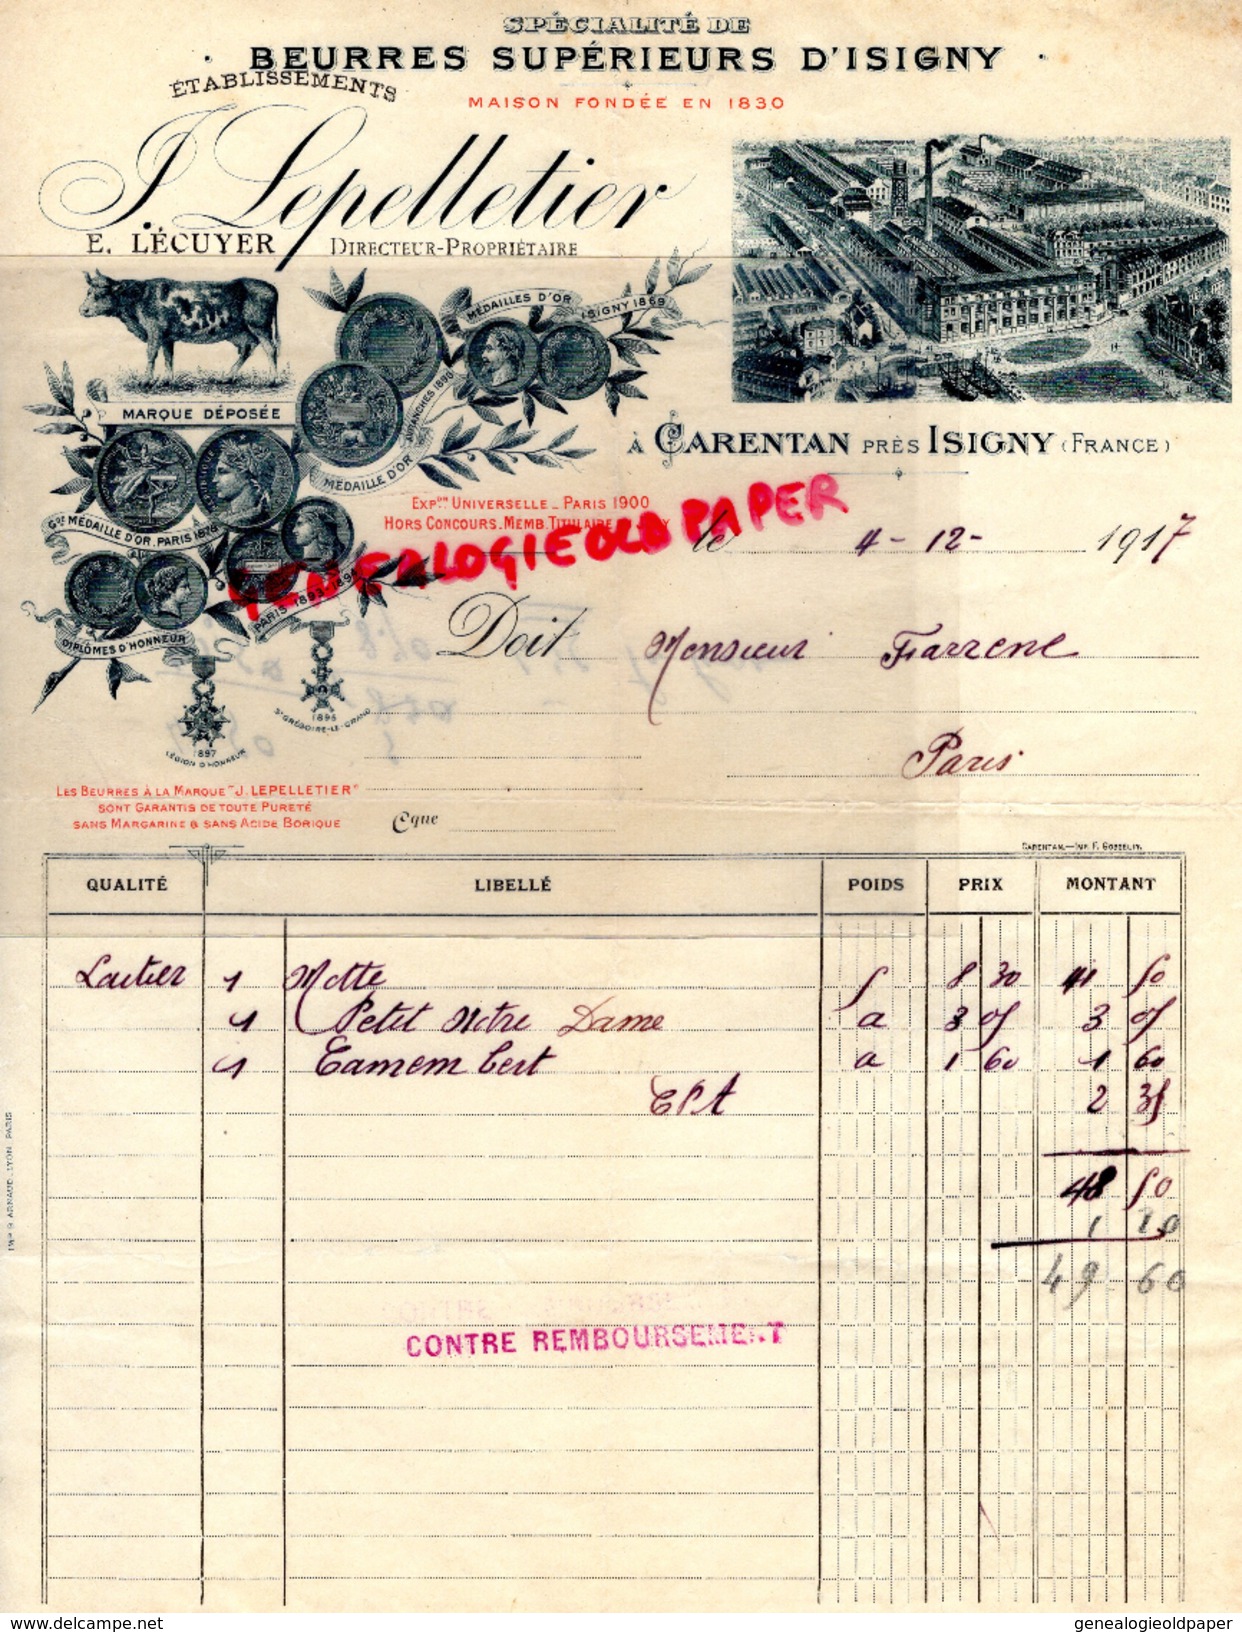 SPÉCIALITÉ DE
· BEURRES SUPÉRIEURS D'ISIGNY ·
ÉTABLISSEMENTS
MAISON FONDÉE EN 1830
J. Lepelletier
E. LÉCUYER DIRECTEUR-PROPRIÉTAIRE
MÉDAILLES D'OR ISIGNY 1869
MARQUE DÉPOSÉE
AVRANCHES 1890
MÉDAILLE D'OR
À CARENTAN PRÈS ISIGNY (FRANCE)
GDE MÉDAILLE D'OR. PARIS 1878
EXPON UNIVERSELLE _ PARIS 1900
HORS CONCOURS. MEMB. TITULAIRE
GENEALOGIEOLDPAPER
le 4-12- 1917
PARIS 1893-1894
DIPLÔMES D'HONNEUR
Doit Monsieur Farrene
1895
ST GRÉGOIRE-LE-GRAND
1897
LÉGION D'HONNEUR
Paris
LES BEURRES À LA MARQUE "J. LEPELLETIER"
SONT GARANTIS DE TOUTE PURETÉ
SANS MARGARINE & SANS ACIDE BORIQUE
Cque
CARENTAN.—IMP. F. GOSSELIN.
QUALITÉ LIBELLÉ POIDS PRIX MONTANT
Laitier 1 Motte 5 8 30 41 50
1 Petit Notre Dame a 3 05 3 05
1 Camembert a 1 60 1 60
2 35
48 50
1 10
49 60
CONTRE REMBOURSEMENT
IMP. G. ARNAUD. LYON. PARIS
genealogieoldpaper